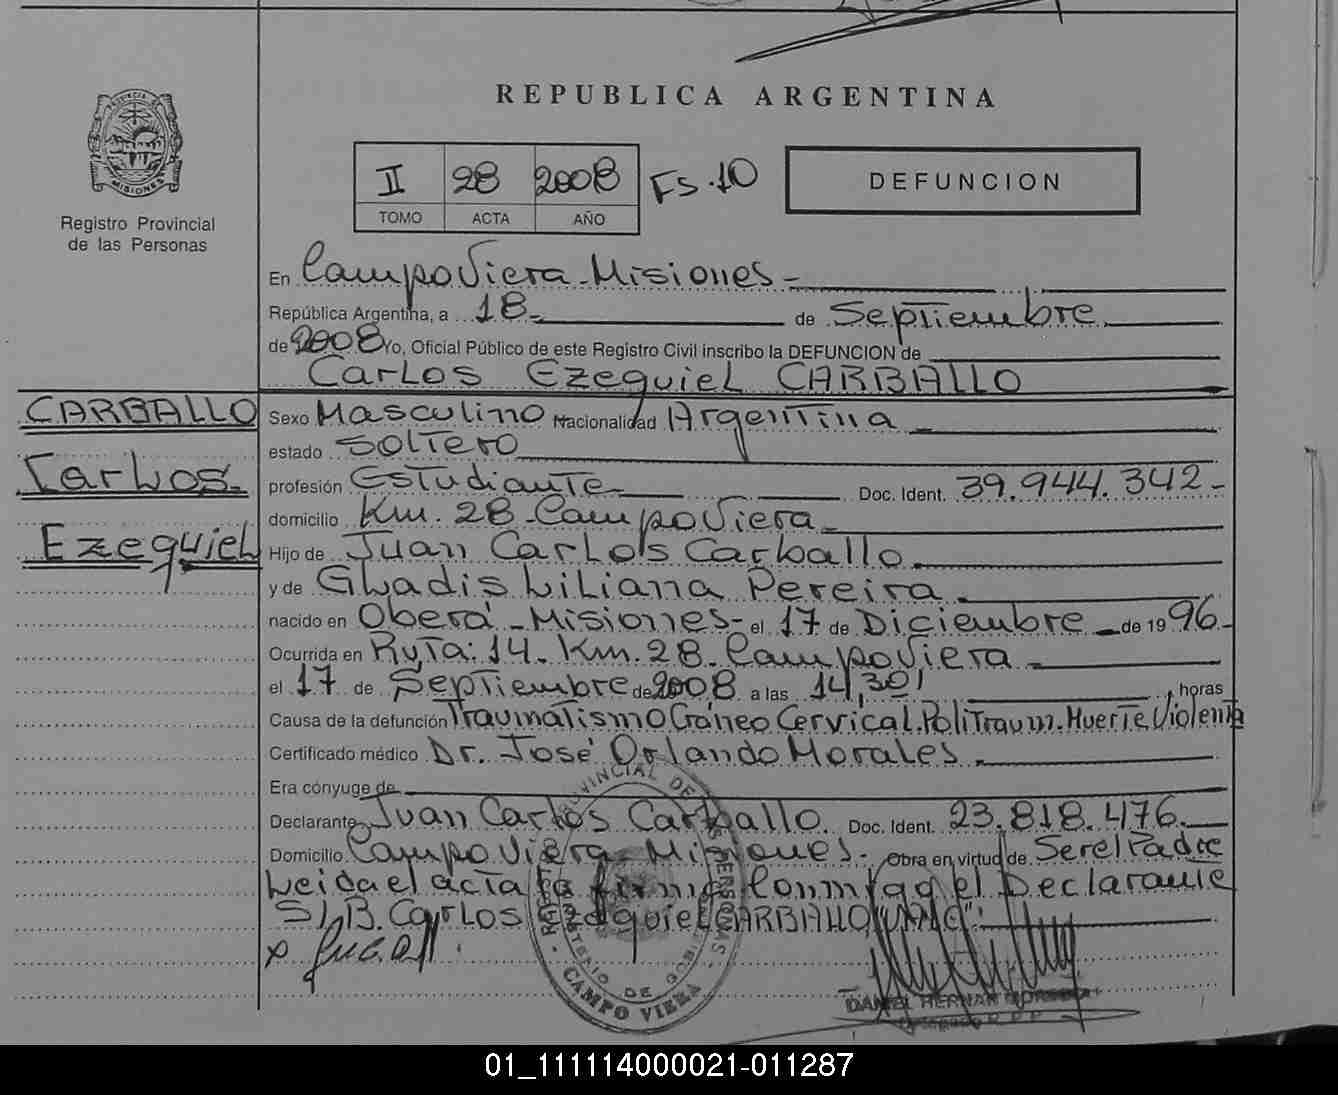 REPUBLICA ARGENTINA
PROVINCIA DE
MISIONES
Registro Provincial
de las Personas
II 28 2008 Fs.10
TOMO ACTA AÑO
DEFUNCION
En Campo Viera - Misiones -
República Argentina, a 18- de Septiembre
de 2008 Yo, Oficial Público de este Registro Civil inscribo la DEFUNCION de
Carlos Ezequiel CARBALLO
CARBALLO
Carlos
Ezequiel
Sexo Masculino Nacionalidad Argentina
estado Soltero
profesión Estudiante Doc. Ident. 39.944.342-
domicilio Km. 28 - Campo Viera -
Hijo de Juan Carlos Carballo.
y de Gladis Liliana Pereira.
nacido en Oberá - Misiones - el 17 de Diciembre de 1996-
Ocurrida en Ruta: 14. Km. 28. Campo Viera -
el 17 de Septiembre de 2008 a las 14,30' horas
Causa de la defunción Traumatismo Cráneo Cervical. Politraum. Muerte Violenta
Certificado médico Dr. José Orlando Morales.
Era cónyuge de
Declarante Juan Carlos Carballo. Doc. Ident. 23.818.476.
Domicilio Campo Viera - Misiones. Obra en virtud de Ser el Padre
Leida el acta la firma Conmigo el Declarante
S/B. Carlos Ezequiel CARBALLO "Vale".
PROVINCIAL DE LAS PERSONAS
MINISTERIO DE GOBIERNO
CAMPO VIERA
DANIEL HERNAN
Delegado R.P.P.
01_111114000021-011287